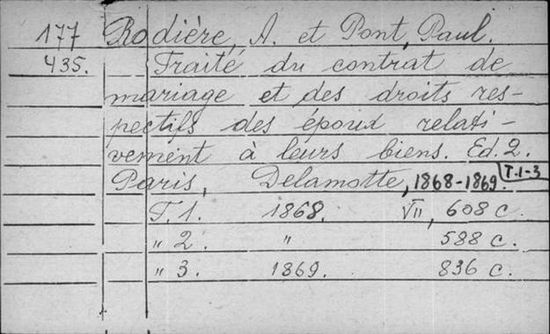 177 Rodiére, A. et Pont, Paul.
435. Traité du contrat de
mariage et des droits res-
pectifs des époux relati-
vement à leurs biens. Ed. 2.
Paris, Delamotte, 1868-1869. T. 1-3
T. 1. 1868. VII, 608 c.
" 2. " 588 c.
" 3. 1869. 836 c.